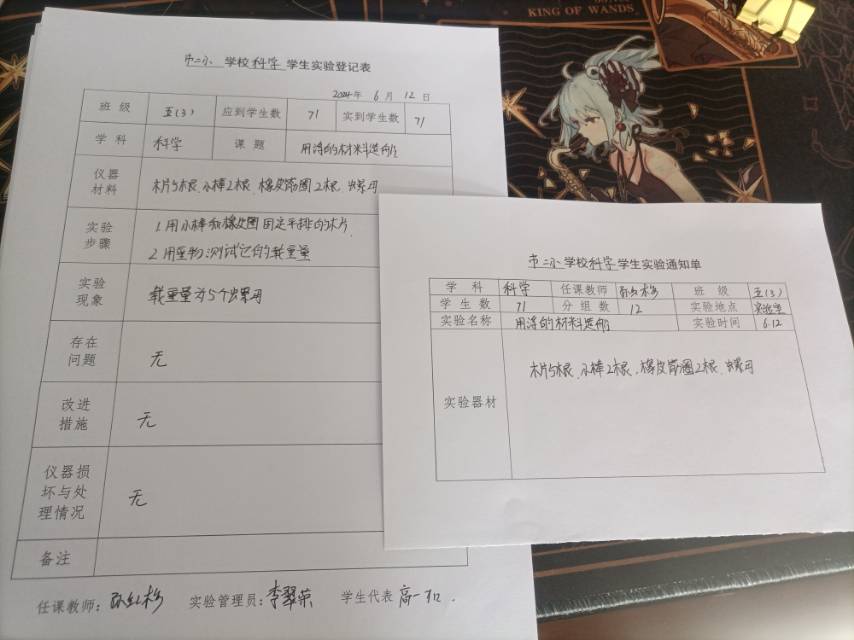 KING OF WANDS
市二小 学校 科学 学生实验登记表
2024年 6月 12日
班级 五(3) 应到学生数 71 实到学生数 71
学科 科学 课题 用浮的材料造船
仪器材料 木片5根、小棒2根、橡皮筋圈2根、螺母
实验步骤 1.用小棒和橡皮圈固定平排的木片.
2.用重物测试它的载重量
实验现象 载重量为5个螺母
存在问题 无
改进措施 无
仪器损坏与处理情况 无
备注
任课教师: 孙红杉 实验管理员: 李翠荣 学生代表
市二小 学校 科学 学生实验通知单
学科 科学 任课教师 孙红杉 班级 五(3)
学生数 71 分组数 12 实验地点 实验室
实验名称 用浮的材料造船 实验时间 6.12
实验器材 木片5根、小棒2根、橡皮筋圈2根、螺母